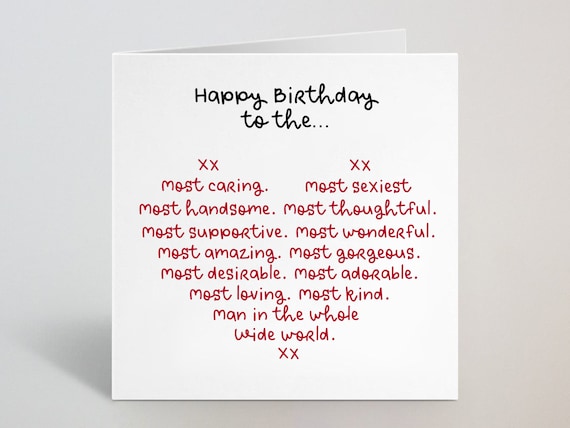 Happy Birthday
to the...
xx xx
most caring. most sexiest
most handsome. most thoughtful.
most supportive. most wonderful.
most amazing. most gorgeous.
most desirable. most adorable.
most loving. most kind.
man in the whole
wide world.
xx